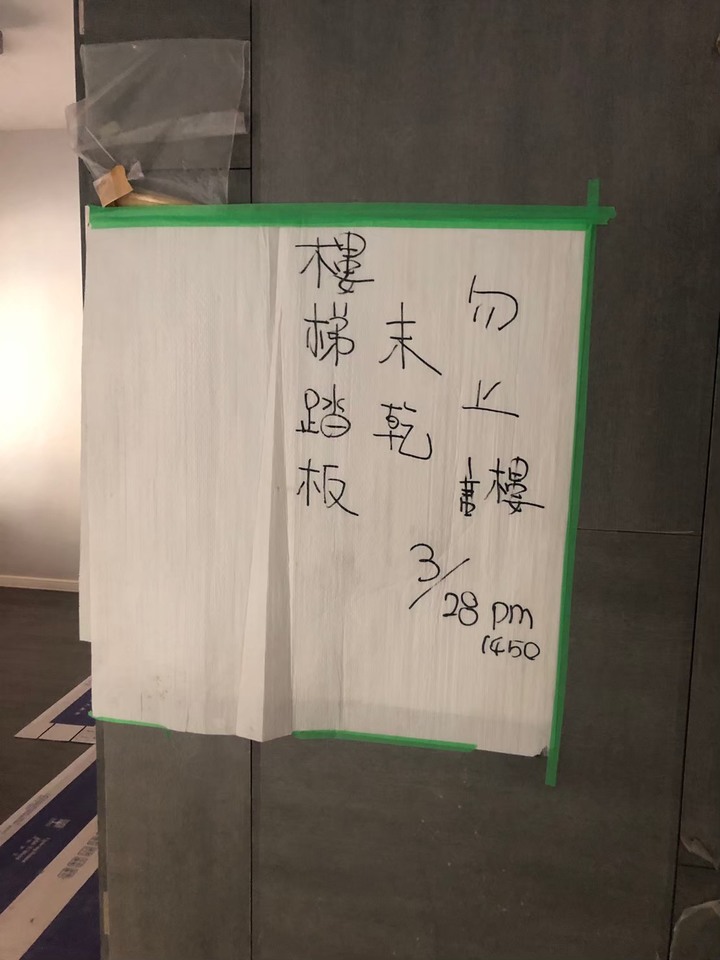 樓梯踏板
未乾
勿上樓
3/28 pm
1450